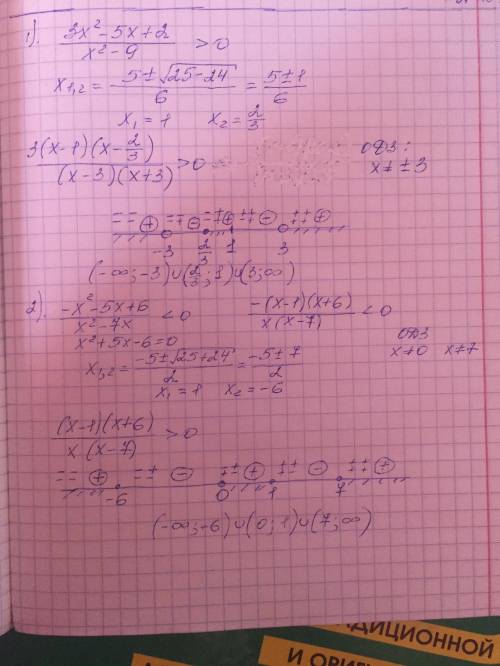 1). (3x²-5x+2)/(x²-9) >0
x₁,₂ = (5±√(25-24))/6 = (5±1)/6
x₁ = 1 x₂ = 2/3
3(x-1)(x-2/3)/((x-3)(x+3)) >0 ОДЗ:
x≠±3
-3 2/3 1 3
(-∞;-3)∪(2/3;1)∪(3;∞)
2). (-x²-5x+6)/(x²-7x) <0 -(x-1)(x+6)/(x(x-7)) <0
x²+5x-6=0 ОДЗ
x₁,₂ = (-5±√(25+24))/2 = (-5±7)/2 x≠0 x≠7
x₁ = 1 x₂ = -6
(x-1)(x+6)/(x(x-7)) >0
-6 0 1 7
(-∞;-6)∪(0;1)∪(7;∞)
ДИЦИОННОЙ
И ОРИ